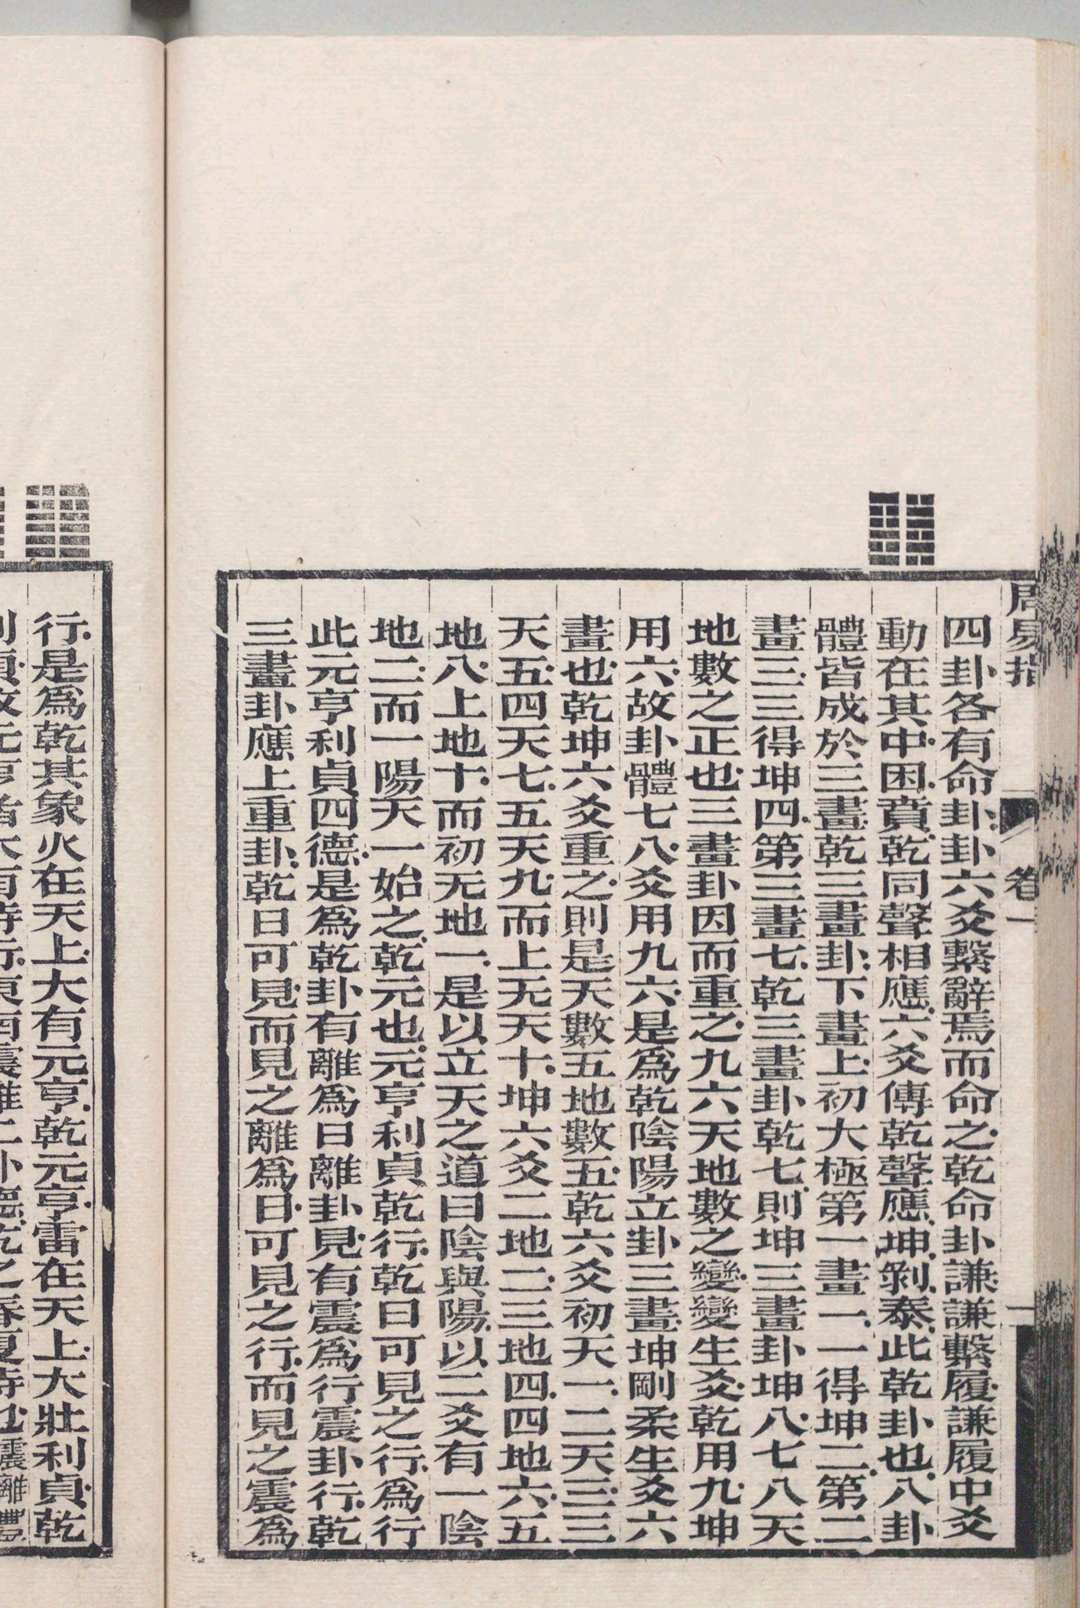 周易指
卷一
四卦各有命卦卦六爻繫辭焉而命之乾命卦謙謙繫履謙履中爻
動在其中困賁乾同聲相應六爻傳乾聲應坤剝泰此乾卦也八卦
體皆成於三畫乾三畫卦下畫上初大極第一畫二一得坤二第二
畫三三得坤四第三畫七乾三畫卦乾七則坤三畫卦坤八七八天
地數之正也三畫卦因而重之九六天地數之變變生爻乾用九坤
用六故卦體七八爻用九六是爲乾陰陽立卦三畫坤剛柔生爻六
畫也乾坤六爻重之則是天數五地數五乾六爻初天一二天三三
天五四天七五天九而上无天十坤六爻二地二三地四四地六五
地八上地十而初无地一是以立天之道曰陰與陽以二爻有一陰
地二而一陽天一始之乾元也元亨利貞乾行乾曰可見之行爲行
此元亨利貞四德是爲乾卦有離爲日離卦見有震爲行震卦行乾
三畫卦應上重卦乾日可見而見之離爲日可見之行而見之震爲
行是爲乾其象火在天上大有元亨乾元亨雷在天上大壯利貞乾